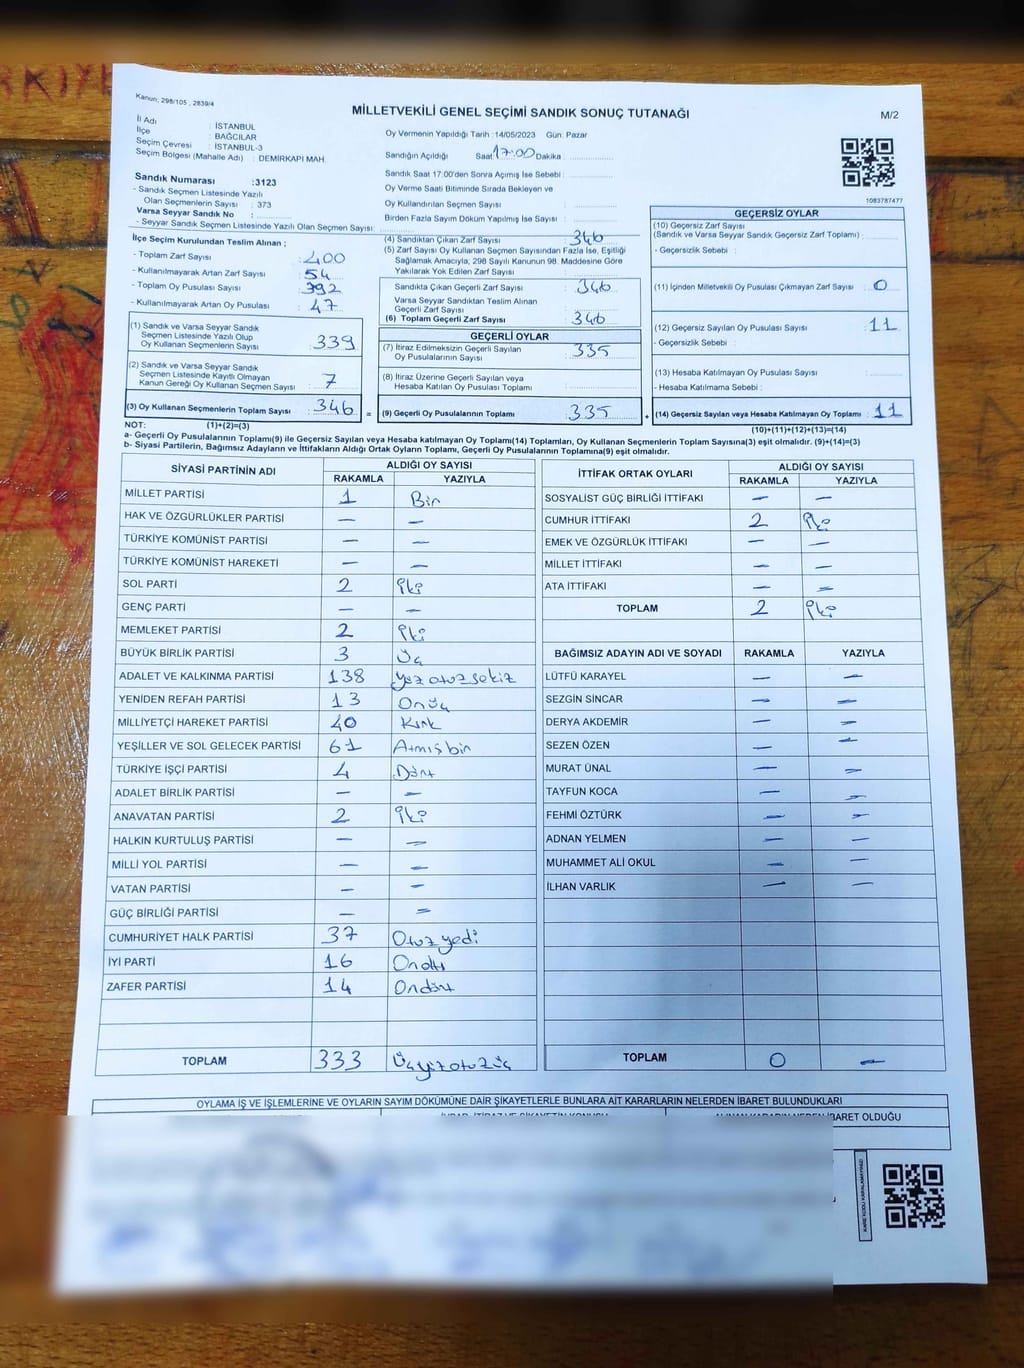 Kanun; 298/105 , 2839/4
MİLLETVEKİLİ GENEL SEÇİMİ SANDIK SONUÇ TUTANAĞI
M/2
İl Adı : İSTANBUL
İlçe : BAĞCILAR
Seçim Çevresi : İSTANBUL-3
Seçim Bölgesi (Mahalle Adı) : DEMİRKAPI MAH.
Sandık Numarası :3123
- Sandık Seçmen Listesinde Yazılı
Olan Seçmenlerin Sayısı : 373
Varsa Seyyar Sandık No :
- Seyyar Sandık Seçmen Listesinde Yazılı Olan Seçmen Sayısı:
Oy Vermenin Yapıldığı Tarih :14/05/2023 Gün: Pazar
Sandığın Açıldığı Saat 17:00 Dakika :
Sandık Saat 17:00'den Sonra Açımış İse Sebebi :
Oy Verme Saati Bitiminde Sırada Bekleyen ve
Oy Kullandırılan Seçmen Sayısı :
Birden Fazla Sayım Döküm Yapılmış İse Sayısı :
1083787477
İlçe Seçim Kurulundan Teslim Alınan ;
- Toplam Zarf Sayısı : 400
- Kullanılmayarak Artan Zarf Sayısı : 54
- Toplam Oy Pusulası Sayısı : 392
- Kullanılmayarak Artan Oy Pusulası : 47
(1) Sandık ve Varsa Seyyar Sandık
Seçmen Listesinde Yazılı Olup
Oy Kullanan Seçmenlerin Sayısı : 339
(2) Sandık ve Varsa Seyyar Sandık
Seçmen Listesinde Kayıtlı Olmayan
Kanun Gereği Oy Kullanan Seçmen Sayısı : 7
(3) Oy Kullanan Seçmenlerin Toplam Sayısı : 346 =
(4) Sandıktan Çıkan Zarf Sayısı : 346
(5) Zarf Sayısı Oy Kullanan Seçmen Sayısından Fazla İse, Eşitliği
Sağlamak Amacıyla; 298 Sayılı Kanunun 98. Maddesine Göre
Yakılarak Yok Edilen Zarf Sayısı :
Sandıkta Çıkan Geçerli Zarf Sayısı : 346
Varsa Seyyar Sandıktan Teslim Alınan
Geçerli Zarf Sayısı :
(6) Toplam Geçerli Zarf Sayısı : 346
GEÇERLİ OYLAR
(7) İtiraz Edilmeksizin Geçerli Sayılan
Oy Pusulalarının Sayısı : 335
(8) İtiraz Üzerine Geçerli Sayılan veya
Hesaba Katılan Oy Pusulası Toplamı :
(9) Geçerli Oy Pusulalarının Toplamı : 335 +
GEÇERSİZ OYLAR
(10) Geçersiz Zarf Sayısı
(Sandık ve Varsa Seyyar Sandık Geçersiz Zarf Toplamı) :
- Geçersizlik Sebebi :
(11) İçinden Milletvekili Oy Pusulası Çıkmayan Zarf Sayısı : 0
(12) Geçersiz Sayılan Oy Pusulası Sayısı : 11
- Geçersizlik Sebebi :
(13) Hesaba Katılmayan Oy Pusulası Sayısı :
- Hesaba Katılmama Sebebi :
(14) Geçersiz Sayılan veya Hesaba Katılmayan Oy Toplamı : 11
NOT: (1)+(2)=(3) (10)+(11)+(12)+(13)=(14)
a- Geçerli Oy Pusulalarının Toplamı(9) ile Geçersiz Sayılan veya Hesaba katılmayan Oy Toplamı(14) Toplamları, Oy Kullanan Seçmenlerin Toplam Sayısına(3) eşit olmalıdır. (9)+(14)=(3)
b- Siyasi Partilerin, Bağımsız Adayların ve İttifakların Aldığı Ortak Oyların Toplamı, Geçerli Oy Pusulalarının Toplamına(9) eşit olmalıdır.
SİYASİ PARTİNİN ADI ALDIĞI OY SAYISI
RAKAMLA YAZIYLA
MİLLET PARTİSİ 1 Bir
HAK VE ÖZGÜRLÜKLER PARTİSİ — —
TÜRKİYE KOMÜNİST PARTİSİ — —
TÜRKİYE KOMÜNİST HAREKETİ — —
SOL PARTİ 2 İki
GENÇ PARTİ — —
MEMLEKET PARTİSİ 2 İki
BÜYÜK BİRLİK PARTİSİ 3 Üç
ADALET VE KALKINMA PARTİSİ 138 yüz otuz sekiz
YENİDEN REFAH PARTİSİ 13 Onüç
MİLLİYETÇİ HAREKET PARTİSİ 40 Kırk
YEŞİLLER VE SOL GELECEK PARTİSİ 61 Atmış bir
TÜRKİYE İŞÇİ PARTİSİ 4 Dört
ADALET BİRLİK PARTİSİ — —
ANAVATAN PARTİSİ 2 İki
HALKIN KURTULUŞ PARTİSİ — —
MİLLİ YOL PARTİSİ — —
VATAN PARTİSİ — —
GÜÇ BİRLİĞİ PARTİSİ — —
CUMHURİYET HALK PARTİSİ 37 Otuz yedi
İYİ PARTİ 16 Onaltı
ZAFER PARTİSİ 14 Ondört
TOPLAM 333 Üçyüzotuzüç
İTTİFAK ORTAK OYLARI ALDIĞI OY SAYISI
RAKAMLA YAZIYLA
SOSYALİST GÜÇ BİRLİĞİ İTTİFAKI — —
CUMHUR İTTİFAKI 2 İki
EMEK VE ÖZGÜRLÜK İTTİFAKI — —
MİLLET İTTİFAKI — —
ATA İTTİFAKI — —
TOPLAM 2 İki
BAĞIMSIZ ADAYIN ADI VE SOYADI RAKAMLA YAZIYLA
LÜTFÜ KARAYEL — —
SEZGİN SİNCAR — —
DERYA AKDEMİR — —
SEZEN ÖZEN — —
MURAT ÜNAL — —
TAYFUN KOCA — —
FEHMİ ÖZTÜRK — —
ADNAN YELMEN — —
MUHAMMET ALİ OKUL — —
İLHAN VARLIK — —
TOPLAM 0 —
OYLAMA İŞ VE İŞLEMLERİNE VE OYLARIN SAYIM DÖKÜMÜNE DAİR ŞİKAYETLERLE BUNLARA AİT KARARLARIN NELERDEN İBARET BULUNDUKLARI
İBARET OLDUĞU